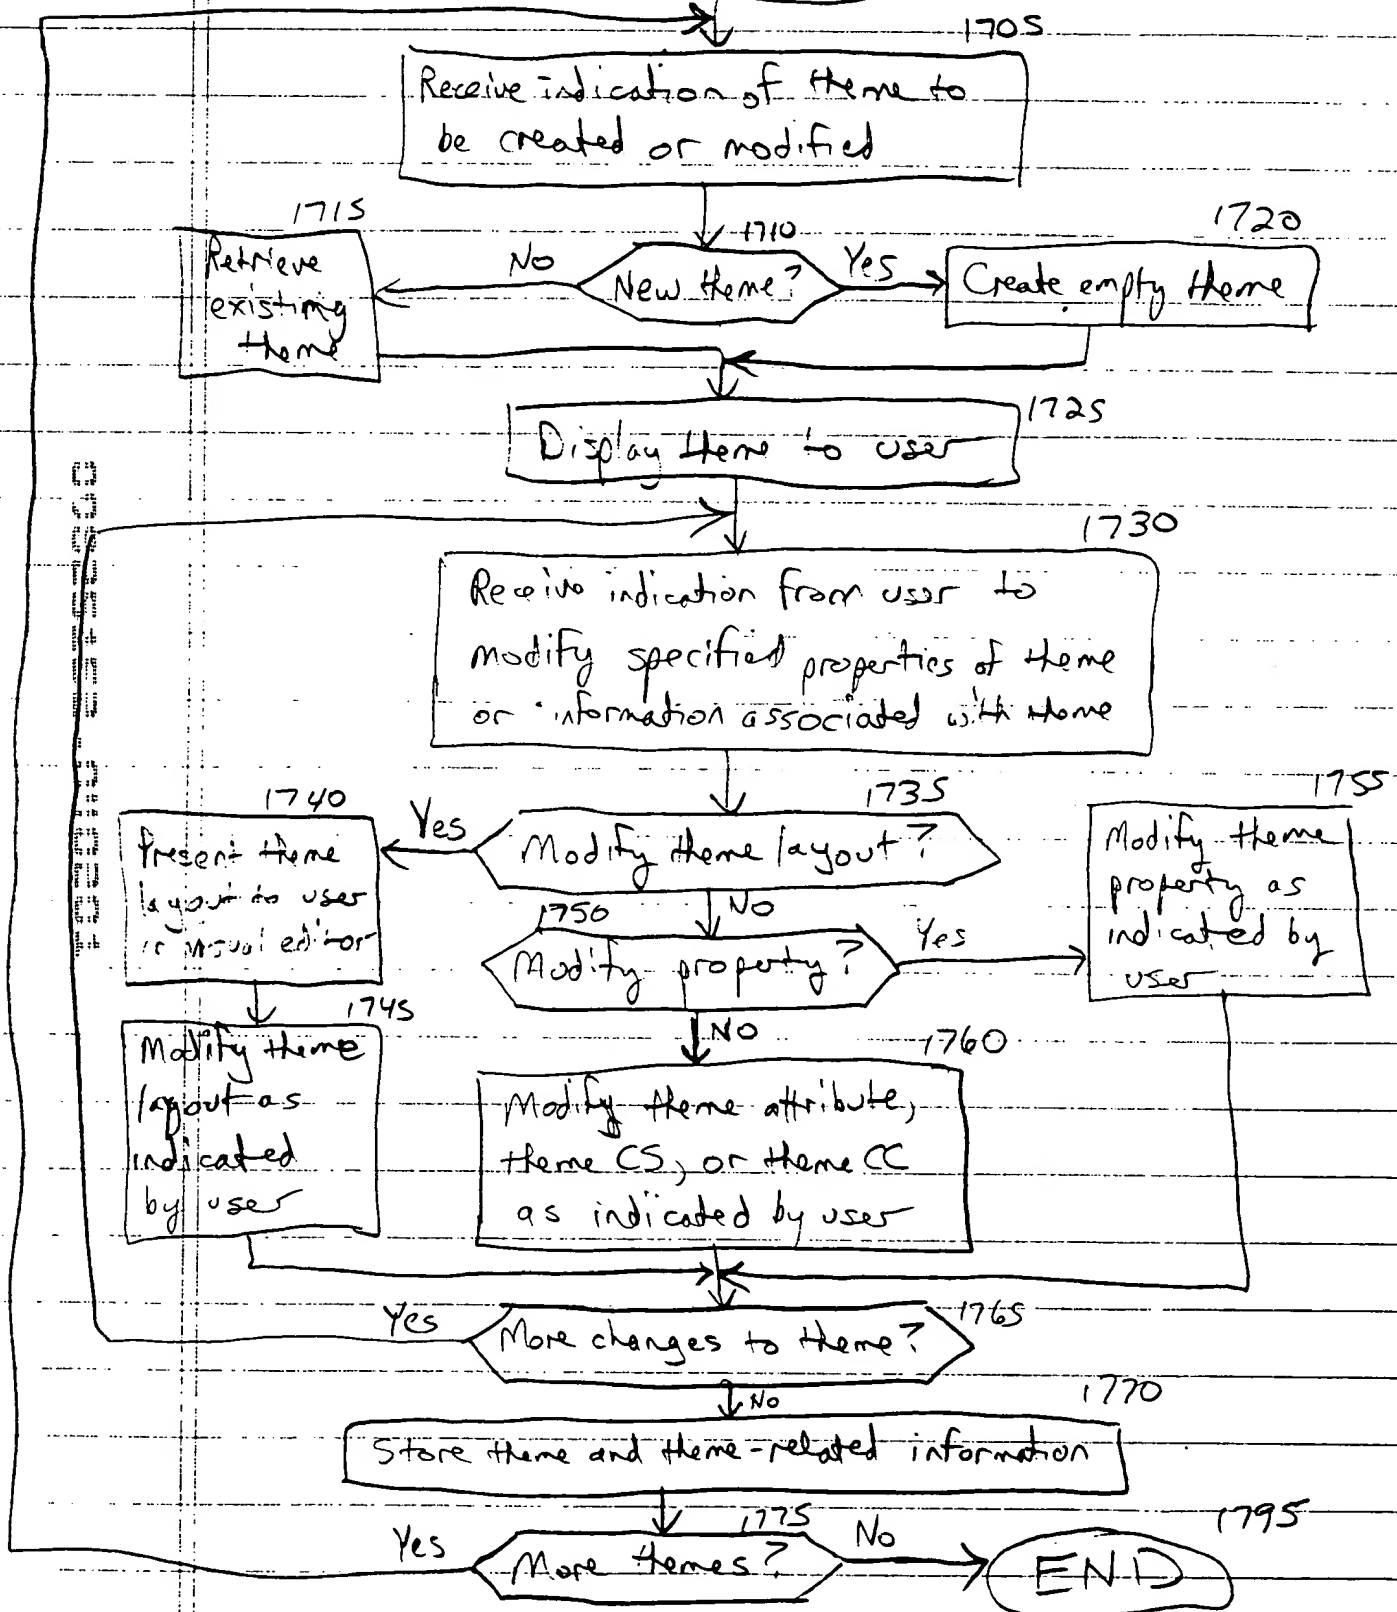 1705
Receive indication of theme to
be created or modified
1715
1710
1720
Retrieve
existing
theme
No
New theme?
Yes
Create empty theme
1725
Display theme to user
1730
Receive indication from user to
modify specified properties of theme
or information associated with theme
1740
Yes
1735
Modify theme layout?
1755
Present theme
layout to user
in visual editor
No
1750
Modify property?
Yes
Modify theme
property as
indicated by
user
1745
Modify theme
layout as
indicated
by user
No
1760
Modify theme attribute,
theme CS, or theme CC
as indicated by user
Yes
More changes to theme?
1765
No
1770
Store theme and theme-related information
Yes
1775
More themes?
No
1795
END